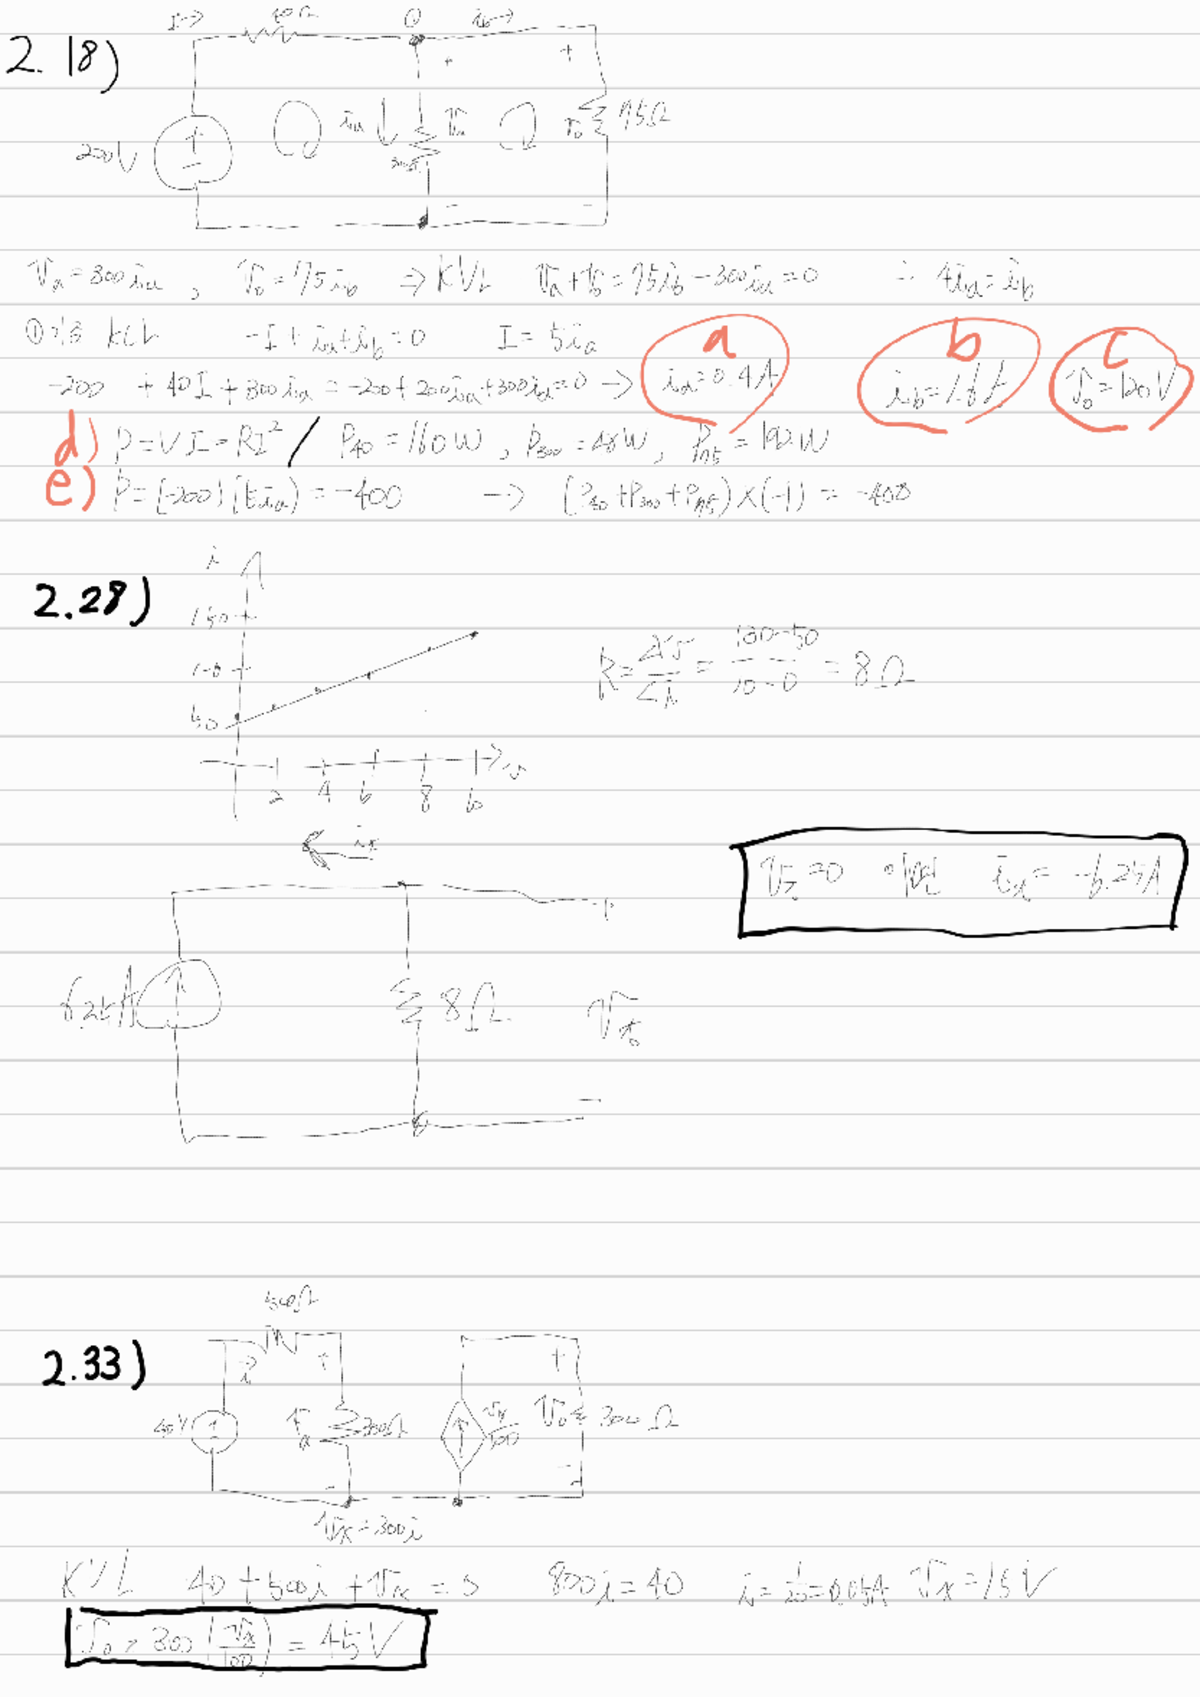 2.18)
I→ 40Ω ① i_b→
+ +
200V i_a ↓ v_a v_o 75Ω
300Ω
- -
v_a=300i_a , v_o=75i_b ⇒ KVL v_a+v_o=75i_b-300i_a=0 ∴ 4i_a=i_b
KCL -I+i_a+i_b=0 I=5i_a
-200 +40I+300i_a=-200+200i_a+300i_a=0 → i_a=0.4A i_b=1.6A v_o=120V
a b c
d) P=VI=RI² / P40=160W, P300=48W, P75=192W
e) P=(-200)(5i_a)=-400 → (P40+P300+P75)×(-1)=-400
2.28)
i
150
100
50
2 4 6 8 10 v
R=Δv/Δi=(130-50)/(10-0)=8Ω
i_x
v_t=0 이면 i_x=-6.25A
+
6.25A 8Ω v_t
-
2.33)
500Ω
i + +
40V v_x 300Ω v_x/100 v_o 300Ω
- -
v_x=300i
KVL 40+500i+v_x=0 800i=40 i=1/20=0.05A v_x=15V
v_o=300(v_x/100)=45V